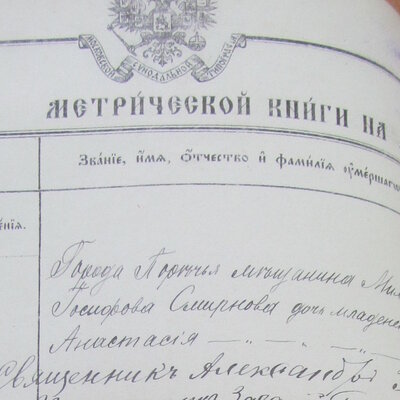 МОСКОВСКОЙ СУНОДАЛЬНОЙ ТИПОГРАФIИ
МЕТРИ́ЧЕСКОЙ КНИ́ГИ НА
Зва́нiе, и҆́мя, ѻ҆́тчество и҆ фами́лiя ᲂу҆ме́ршагѡ
ения.
Города Порѣчья мѣщанина
Іосифова Смирнова дочь младене
Анастасія — „ — „ — „ —
Священникъ Александръ